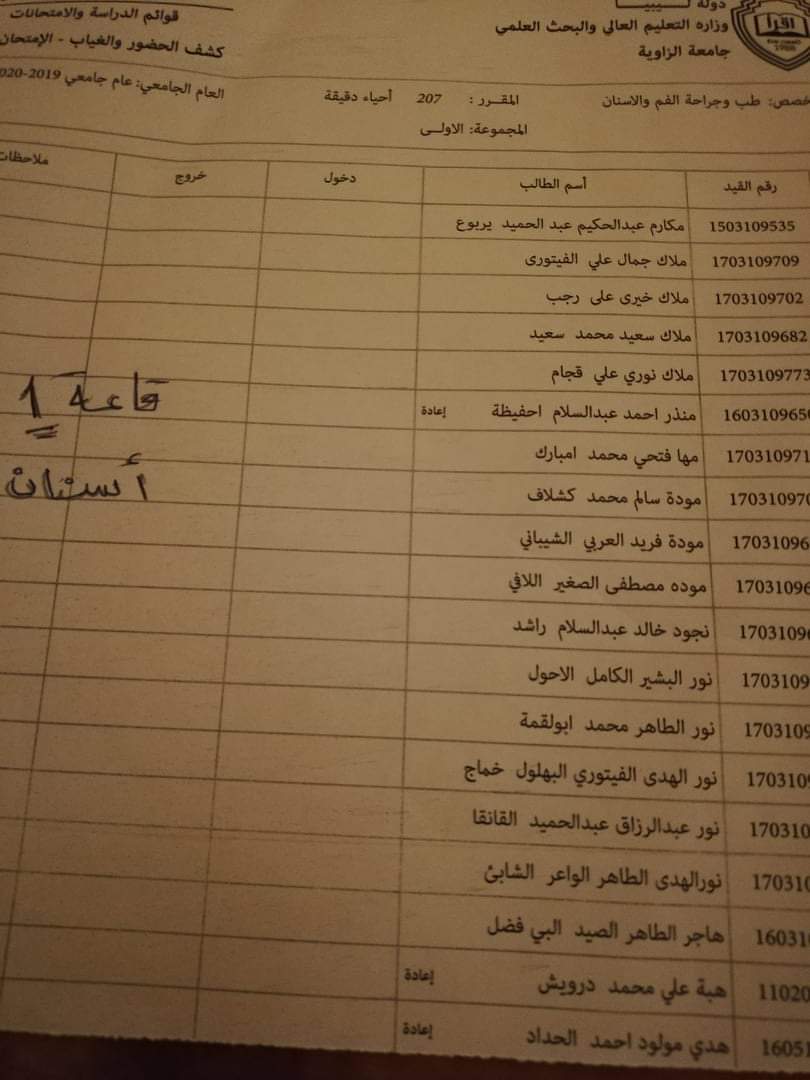 دولة ليبيا
وزاره التعليم العالي والبحث العلمي
جامعة الزاوية
اقرأ
1988
قوائم الدراسة والامتحانات
كشف الحضور والغياب - الإمتحان
العام الجامعي: عام جامعي 2019-2020
خصص: طب وجراحة الفم والاسنان
المقرر: 207 أحياء دقيقة
المجموعة: الاولى
رقم القيد أسم الطالب دخول خروج ملاحظات
1503109535 مكارم عبدالحكيم عبد الحميد يربوع
1703109709 ملاك جمال علي الفيتورى
1703109702 ملاك خيرى على رجب
1703109682 ملاك سعيد محمد سعيد
1703109773 ملاك نوري علي قجام
160310965 منذر احمد عبدالسلام احفيظة إعادة
170310971 مها فتحي محمد امبارك
17031097 مودة سالم محمد كشلاف
17031096 مودة فريد العربي الشيباني
1703109 موده مصطفى الصغير اللافي
1703109 نجود خالد عبدالسلام راشد
1703109 نور البشير الكامل الاحول
170310 نور الطاهر محمد ابولقمة
170310 نور الهدى الفيتوري البهلول خماج
170310 نور عبدالرزاق عبدالحميد القانقا
17031 نورالهدى الطاهر الواعر الشابئ
16031 هاجر الطاهر الصيد البي فضل
11020 هبة علي محمد درويش إعادة
16051 هدي مولود احمد الحداد إعادة
قاعة 1
أسنان